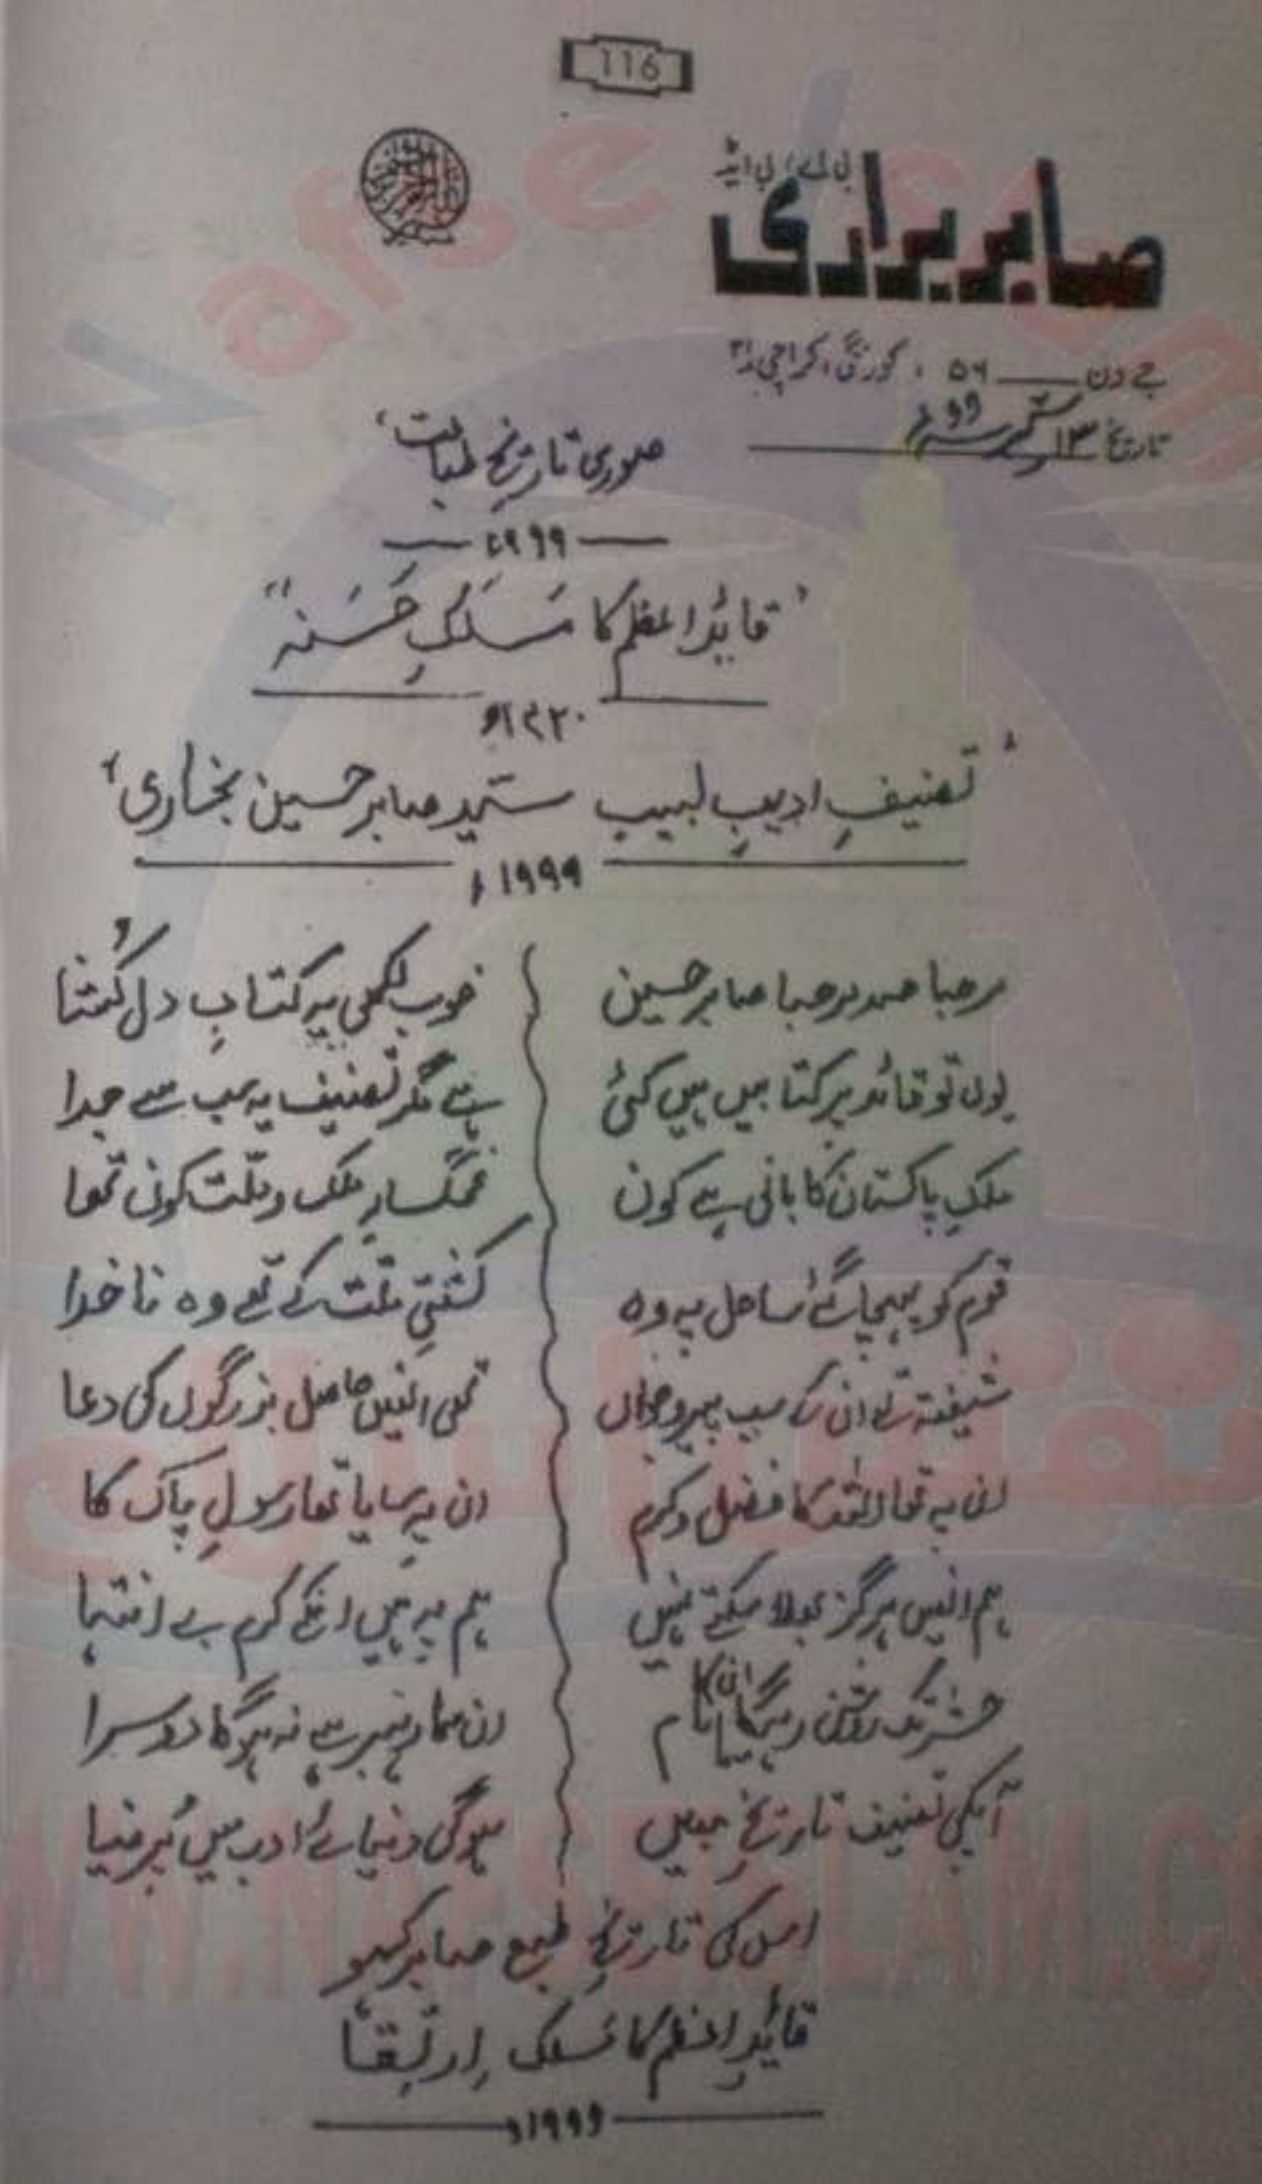 116
بی اے، بی ایڈ
صابر براری
جے ون ۵۶، کورنگی، کراچی ۳۱
تاریخ ۱۳ ۹۹
صوری تاریخ طباعت
۱۹۹۹ء
"قائد اعظم کا مَسلکِ حَسَنہ"
۱۴۲۰ھ
'تصنیفِ ادیبِ لبیب سیّد صابر حسین بخاری'
۱۹۹۹ء
مرحبا صد مرحبا صابر حسین خوب لکھی یہ کتابِ دل کُشا
یوں تو قائد پر کتابیں ہیں کئی ہے مگر تصنیف یہ سب سے جدا
ملکِ پاکستان کا بانی ہے کون غمگسارِ ملک و ملّت کون تھا
قوم کو پہنچا گئے ساحل پہ وہ کشتیِ ملّت کے تھے وہ ناخدا
شیفتہ تھے ان کے سب پیر و جواں تھی انہیں حاصل بزرگوں کی دعا
ان پہ تھا اللہ کا فضل و کرم ان پہ سایا تھا رسولِ پاک کا
ہم انہیں ہرگز بھلا سکتے نہیں ہم پہ ہیں انکے کرم بے انتہا
حشر تک روشن رہیگا ان کا نام ان سا رہبر ہے نہ ہوگا دوسرا
آپکی تصنیف تاریخِ مبیں ہوگی دنیائے ادب میں پُر ضیا
اس کی تاریخِ طبع صابر کہو
قائدِ اعظم کا مسلک اِرتِقا
۱۹۹۹ء
Nafse Islam
نفس اسلام
WWW.NAFSEISLAM.CO